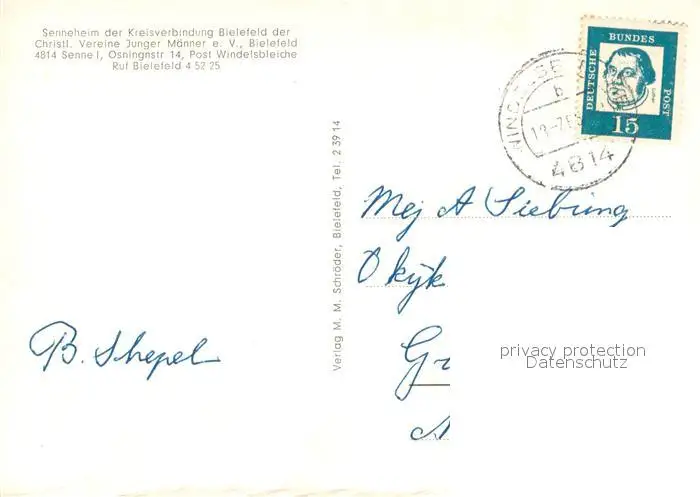 Senneheim der Kreisverbindung Bielefeld der
Christl. Vereine Junger Männer e. V., Bielefeld
4814 Senne I, Osningstr 14, Post Windelsbleiche
Ruf Bielefeld 4 52 25
DEUTSCHE
BUNDES
POST
Luther
15
4814
Verlag M. M. Schröder, Bielefeld, Tel. 2 39 14
Mej A Siebring
B. Shepel
privacy protection
Datenschutz